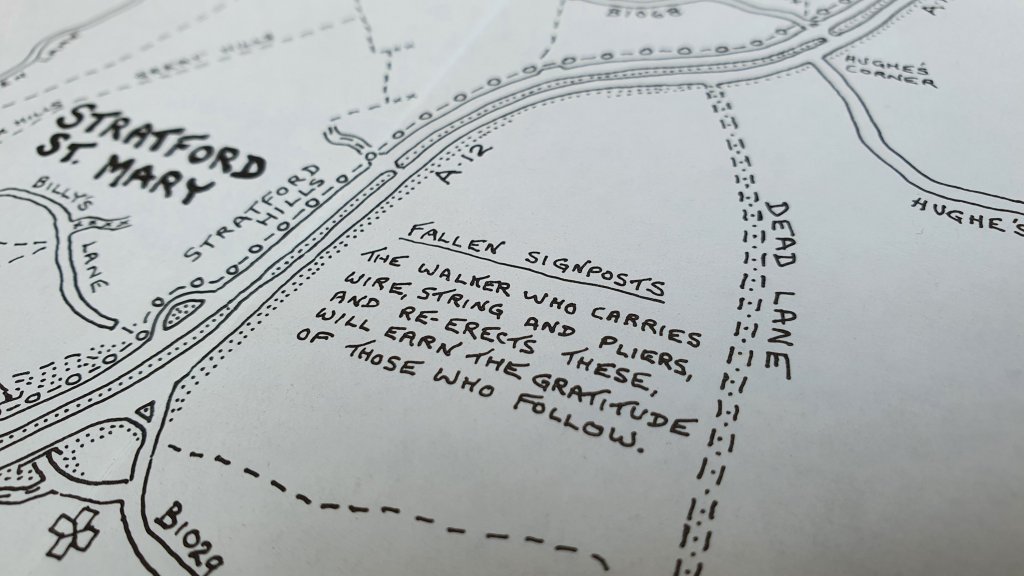 B1068
BRENT HILLS
HILLS
STRATFORD
ST. MARY
HUGHE'S
CORNER
A12
STRATFORD
HILLS
BILLY'S
LANE
HUGHE'S
DEAD LANE
FALLEN SIGNPOSTS
THE WALKER WHO CARRIES
WIRE, STRING AND PLIERS,
AND RE-ERECTS THESE,
WILL EARN THE GRATITUDE
OF THOSE WHO FOLLOW.
B1029